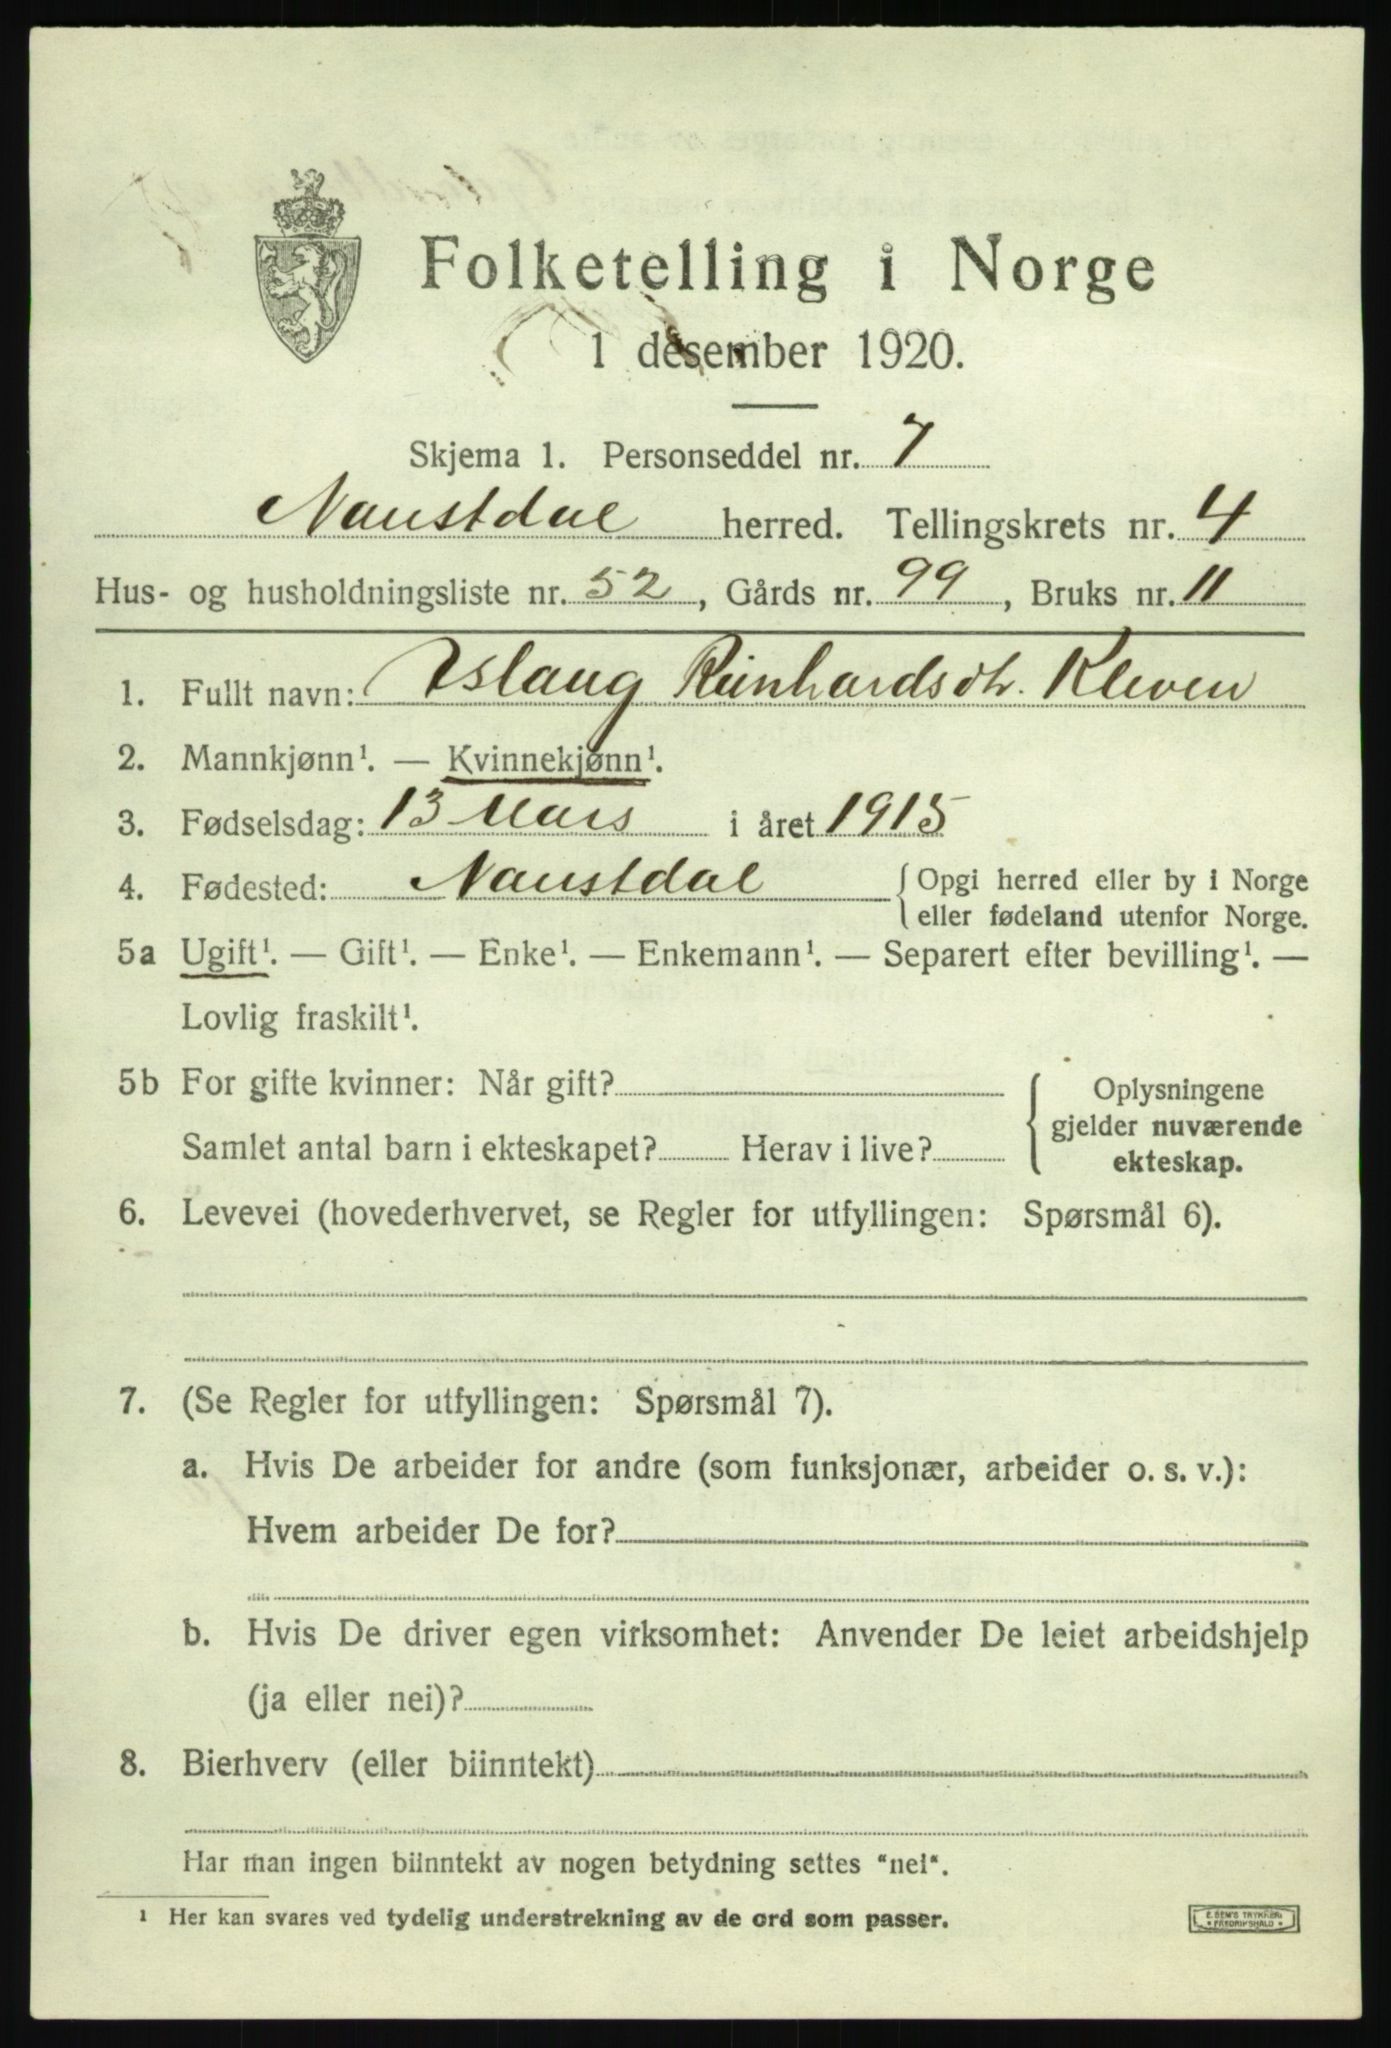 Folketelling i Norge
1 desember 1920.
Skjema 1. Personseddel nr. 7
Naustdal herred. Tellingskrets nr. 4
Hus- og husholdningsliste nr. 52, Gårds nr. 99, Bruks nr. 11
1. Fullt navn: Aslaug Reinhardsdtr. Kleven
2. Mannkjønn¹. — Kvinnekjønn¹.
3. Fødselsdag: 13 Mars i året 1915
4. Fødested: Naustdal { Opgi herred eller by i Norge
eller fødeland utenfor Norge.
5a Ugift¹. — Gift¹. — Enke¹. — Enkemann¹. — Separert efter bevilling¹. —
Lovlig fraskilt¹.
5b For gifte kvinner: Når gift?
Samlet antal barn i ekteskapet? Herav i live?
{ Oplysningene
gjelder nuværende
ekteskap.
6. Levevei (hovederhvervet, se Regler for utfyllingen: Spørsmål 6).
7. (Se Regler for utfyllingen: Spørsmål 7).
a. Hvis De arbeider for andre (som funksjonær, arbeider o. s. v.):
Hvem arbeider De for?
b. Hvis De driver egen virksomhet: Anvender De leiet arbeidshjelp
(ja eller nei)?
8. Bierhverv (eller biinntekt)
Har man ingen biinntekt av nogen betydning settes "nei".
¹ Her kan svares ved tydelig understrekning av de ord som passer.
E. SEM'S TRYKKERI
* FREDRIKSHALD *